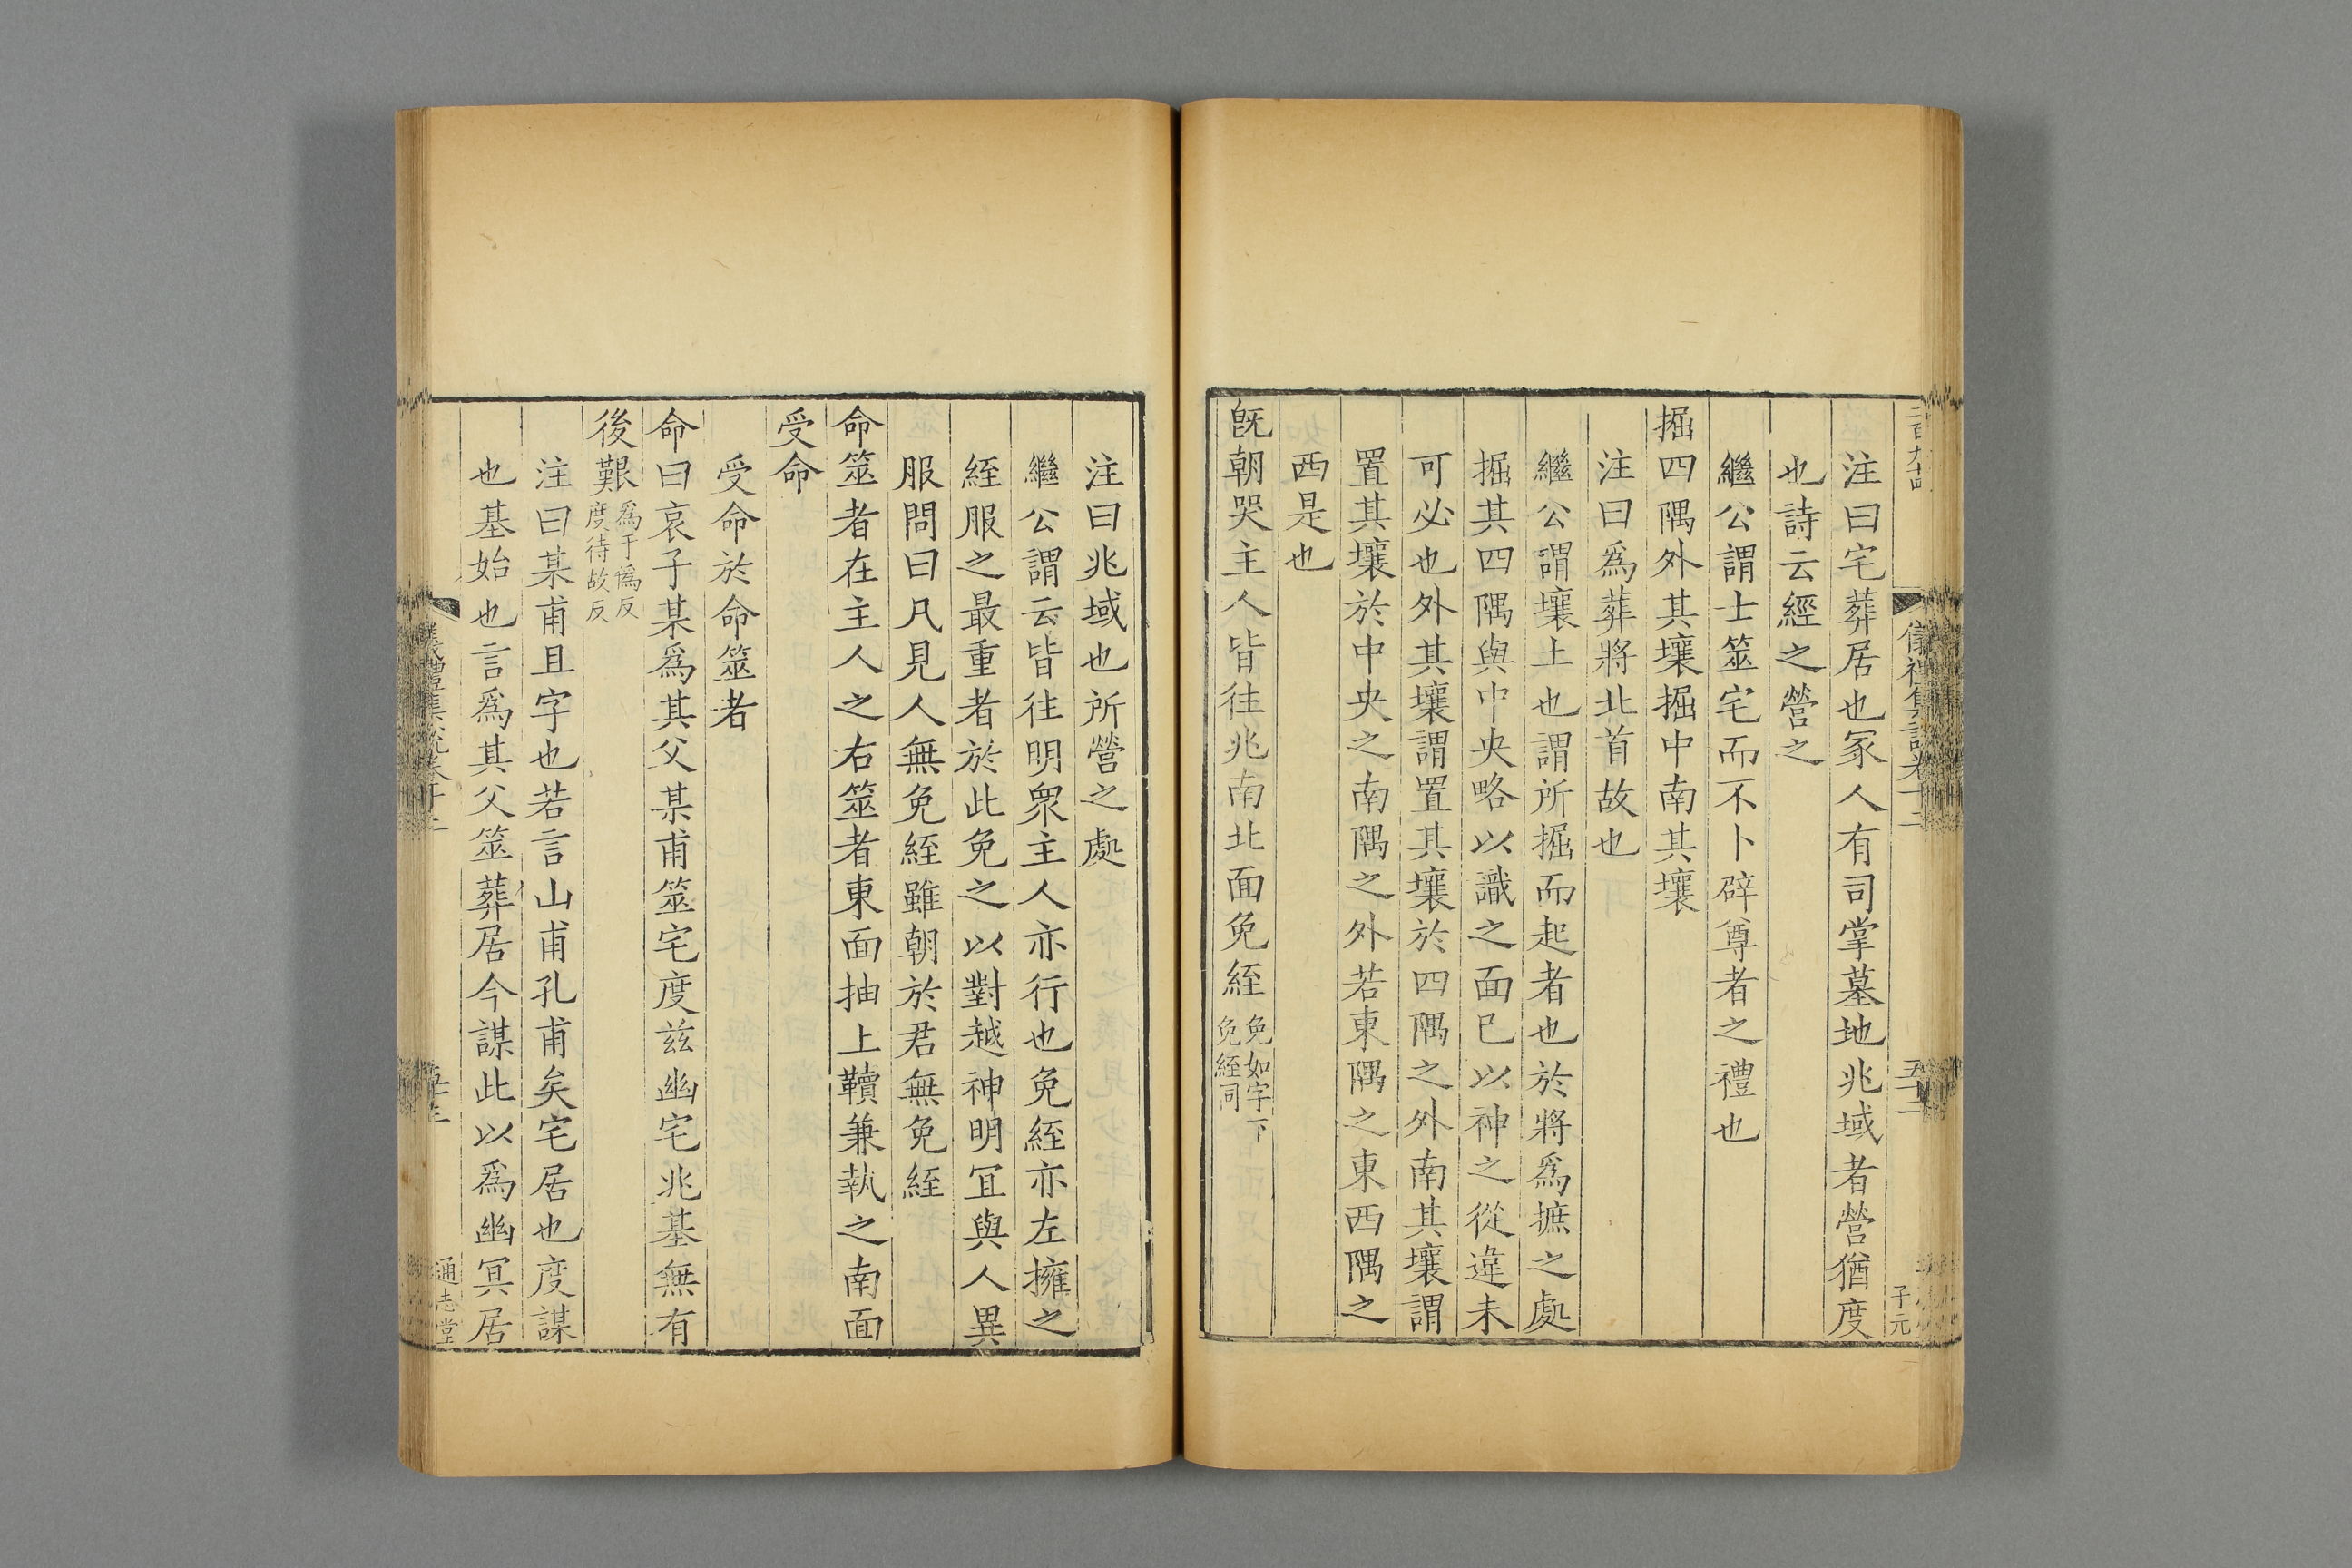 注曰宅葬居也冢人有司掌墓地兆域者營猶度
也詩云經之營之
繼公謂士筮宅而不卜辟尊者之禮也
掘四隅外其壤掘中南其壤
注曰爲葬將北首故也
繼公謂壤土也謂所掘而起者也於將爲摭之處
掘其四隅與中央略以識之而已以神之從違未
可必也外其壤謂置其壤於四隅之外南其壤謂
置其壤於中央之南隅之外若東隅之東西隅之
西是也
旣朝哭主人皆往兆南北面免絰免如字下
免絰同
注曰兆域也所營之處
繼公謂云皆往明衆主人亦行也免絰亦左擁之
絰服之最重者於此免之以對越神明冝與人異
服問曰凡見人無免絰雖朝於君無免絰
命筮者在主人之右筮者東面抽上韇兼執之南面
受命
受命於命筮者
命曰哀子某爲其父某甫筮宅度兹幽宅兆基無有
後艱爲于僞反
度待故反
注曰某甫且字也若言山甫孔甫矣宅居也度謀
也基始也言爲其父筮葬居今謀此以爲幽冥居
通志堂
子元